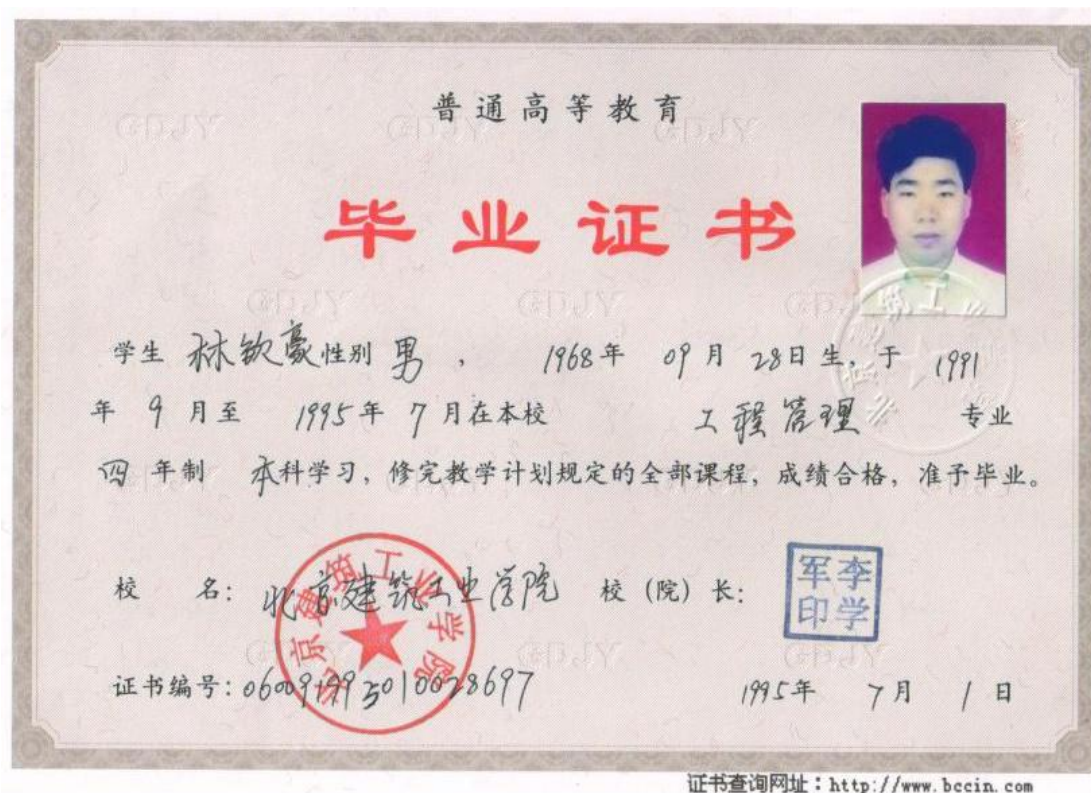 普通高等教育
毕业证书
学生 林钦豪 性别 男 , 1968年 09月 28日生,于 1991
年 9 月至 1995年 7月在本校 工程管理 专业
四 年制 本科学习,修完教学计划规定的全部课程,成绩合格,准予毕业。
校 名: 北京建筑工业学院 校(院)长:
李学军印
北京建筑工业学院
证书编号: 1995年 7月 1日
证书查询网址:http://www.bccin.com
GDJY